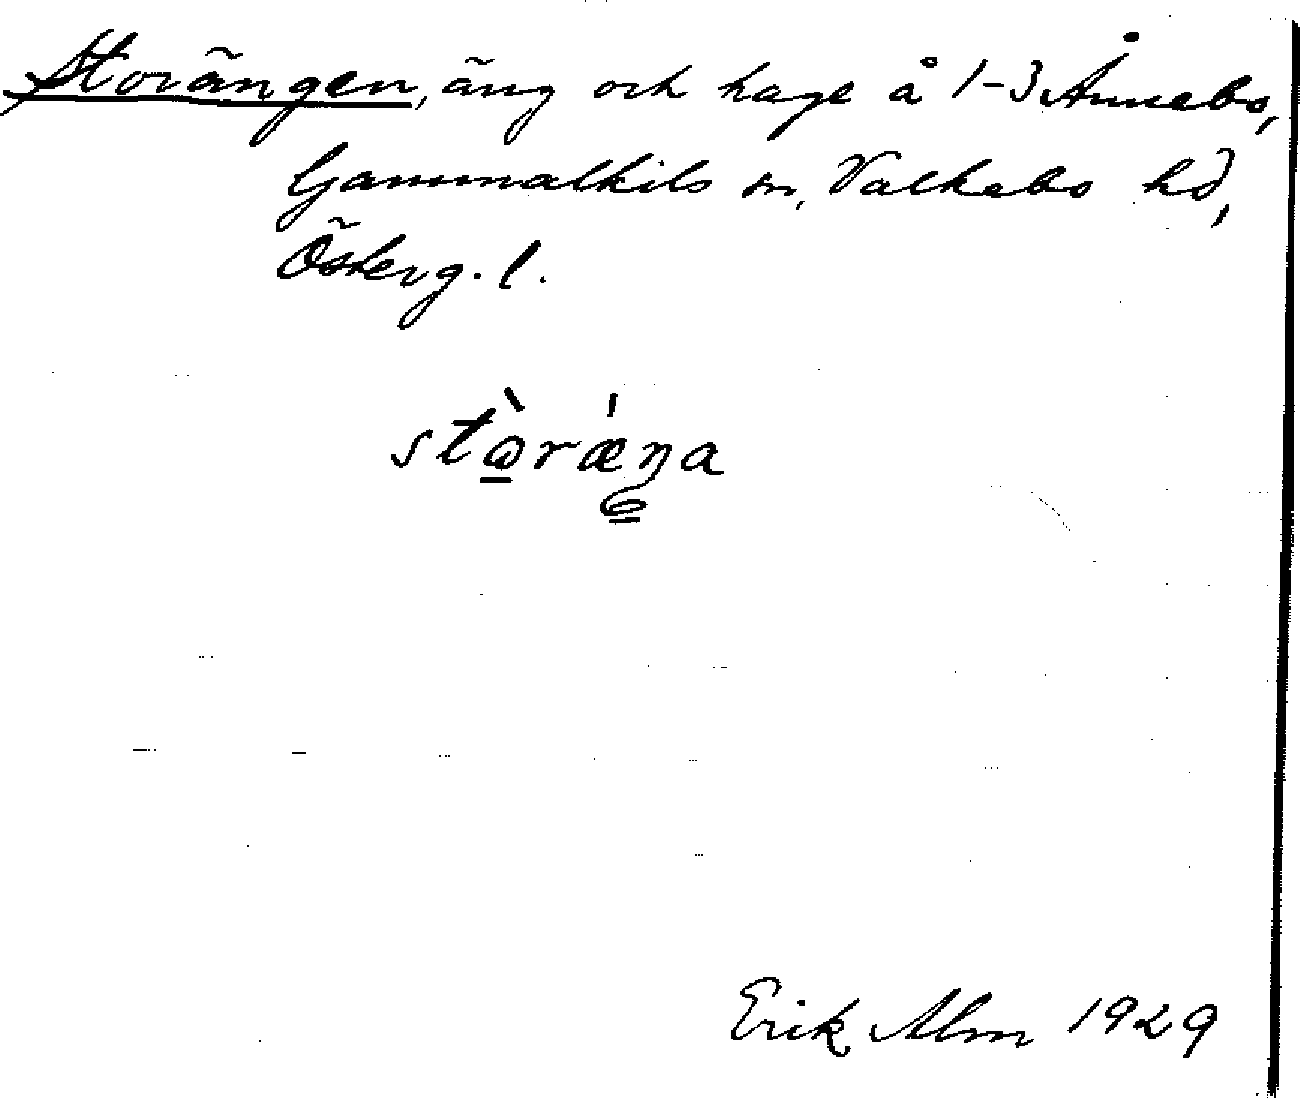 Storängen, äng och hage å 1-3 Ånnebo,
Gammalkils sn, Valkebo hd,
Österg. l.
stòrǽŋa
Erik Alm 1929